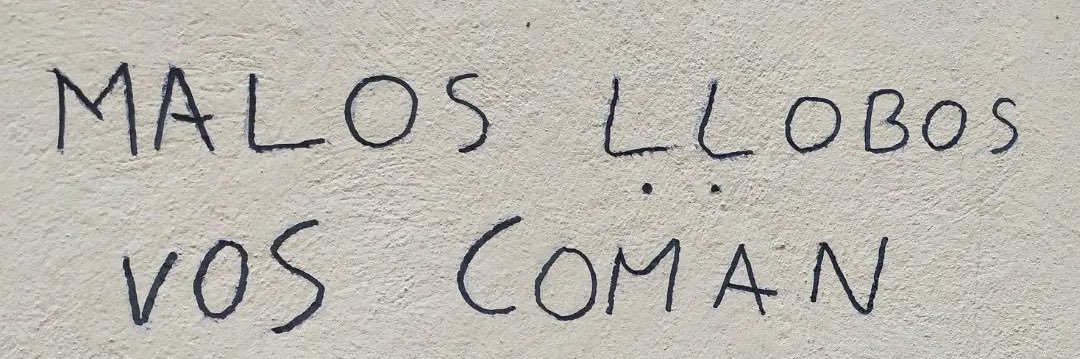 MALOS ḶḶOBOS
VOS COMAN